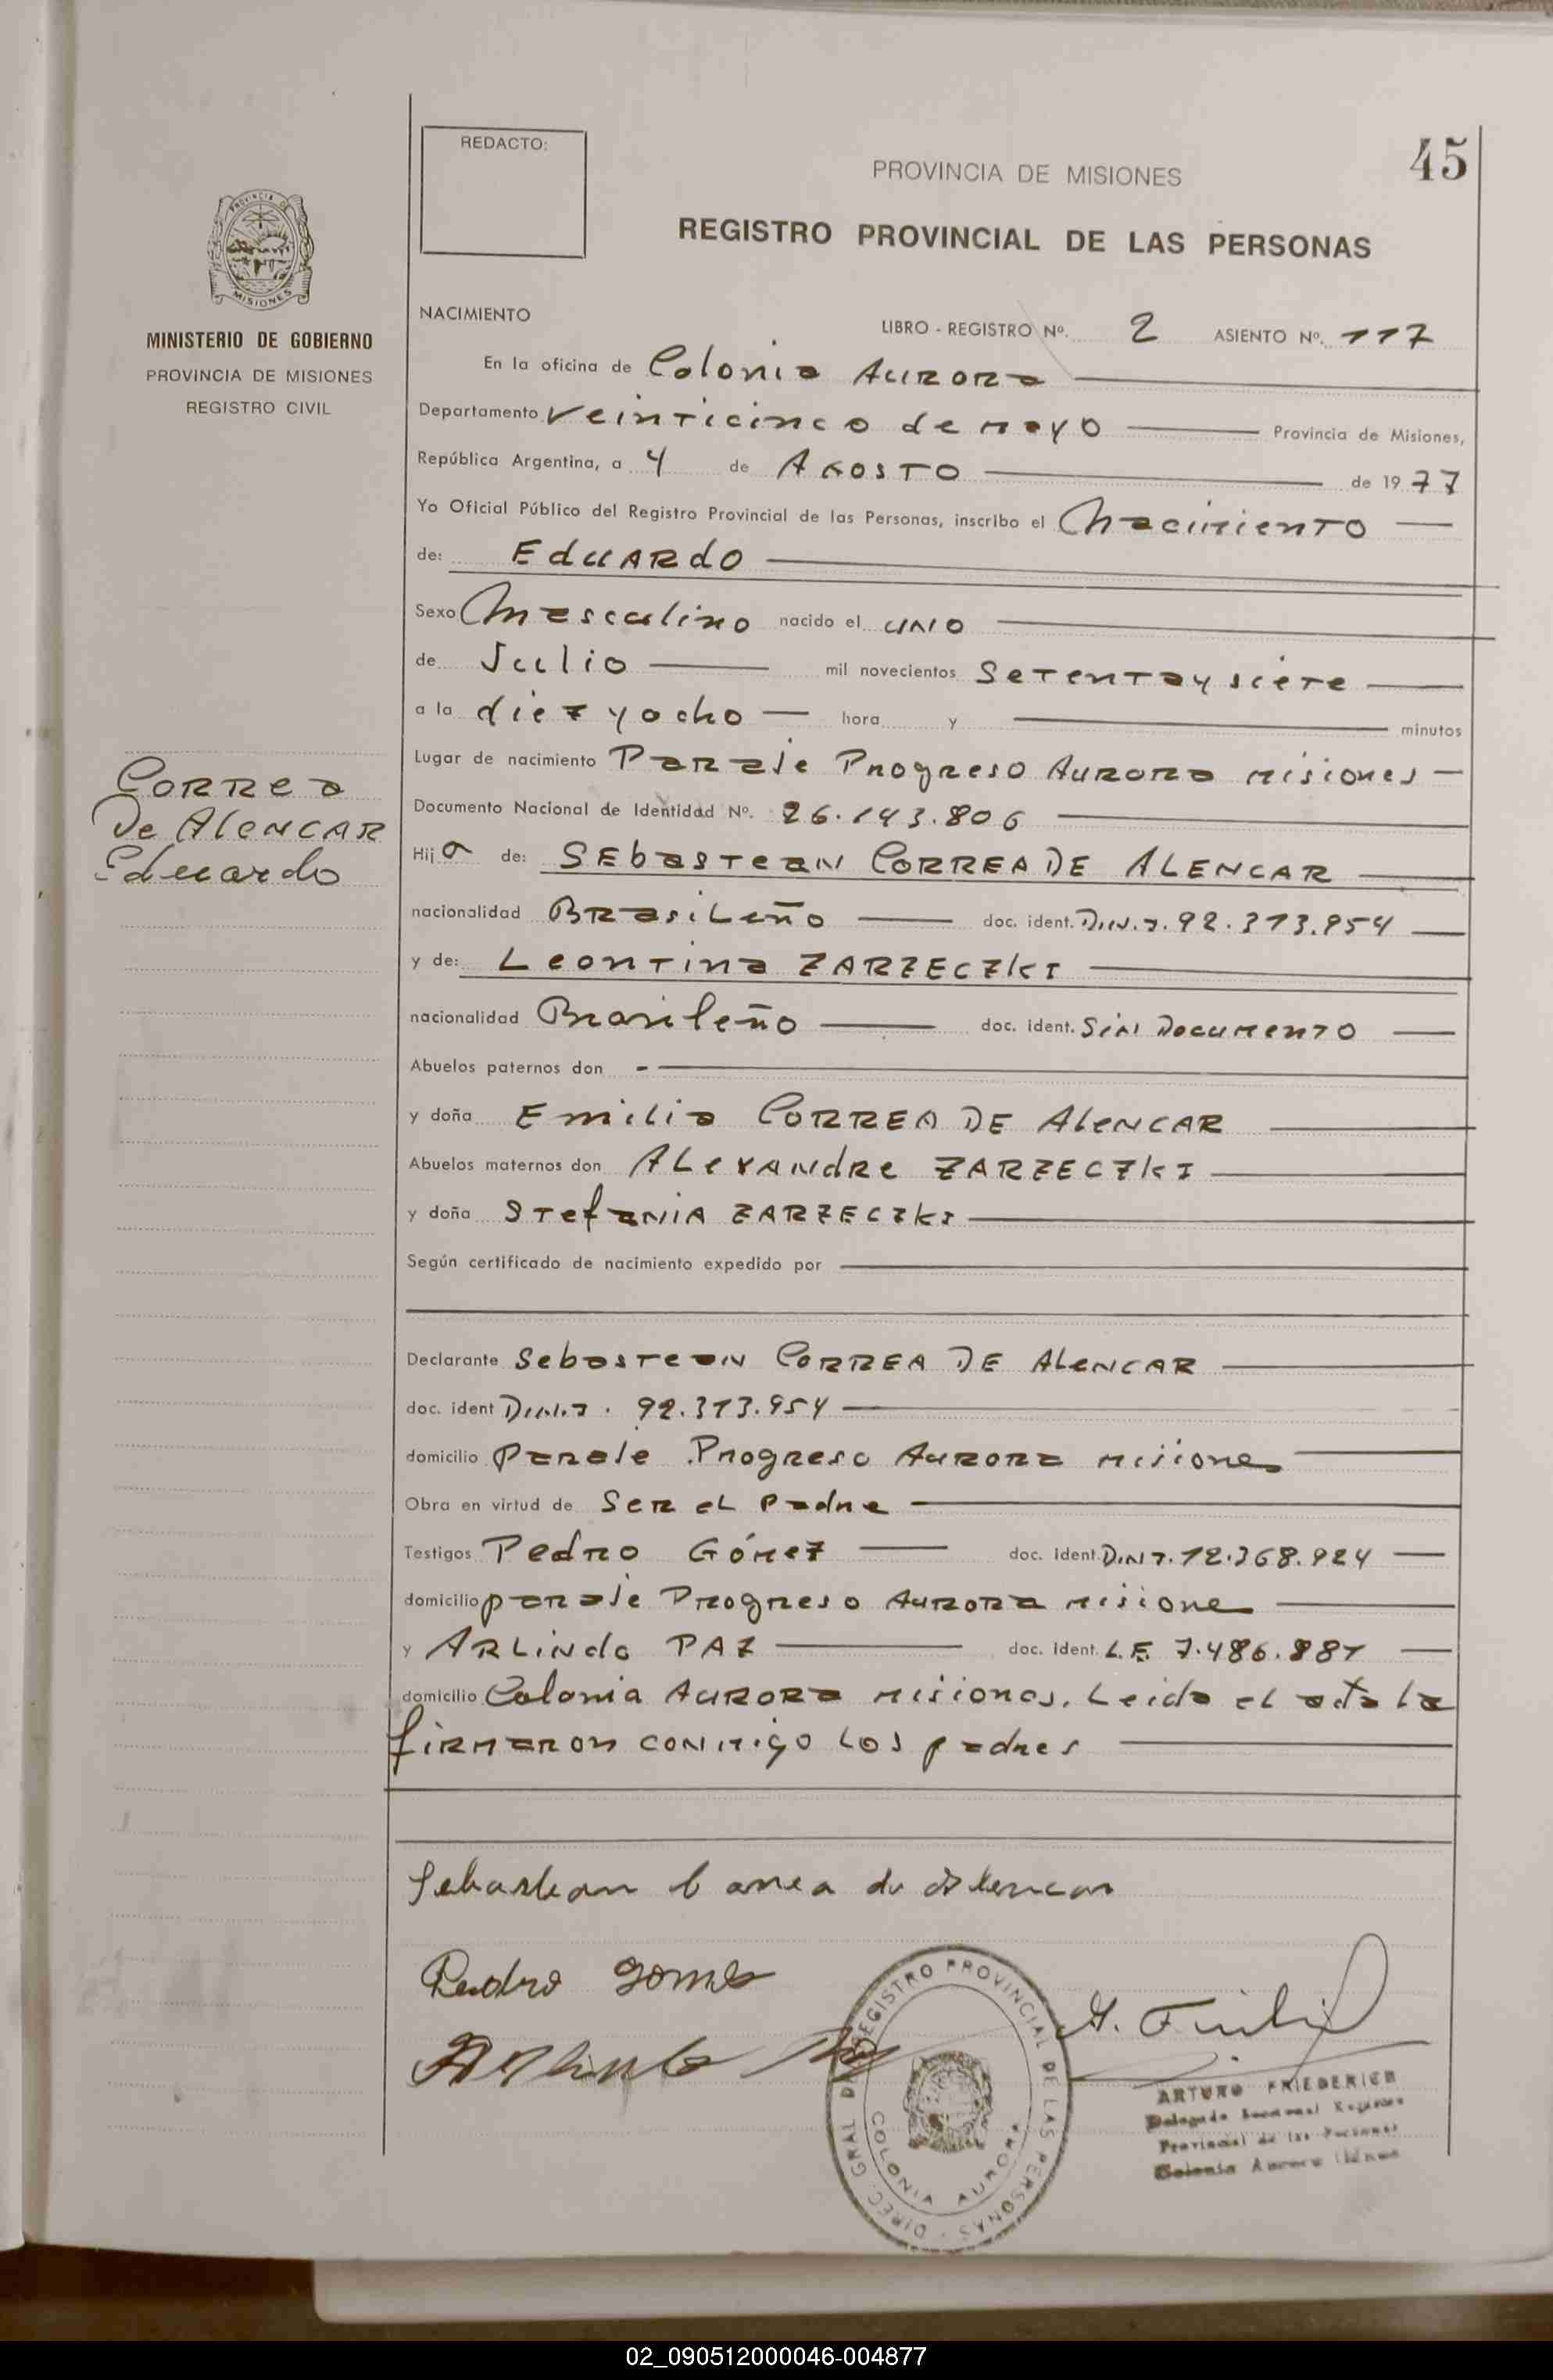 45
REDACTO:
PROVINCIA DE MISIONES
REGISTRO PROVINCIAL DE LAS PERSONAS
PROVINCIA DE
MISIONES
MINISTERIO DE GOBIERNO
PROVINCIA DE MISIONES
REGISTRO CIVIL
NACIMIENTO
LIBRO - REGISTRO Nº. 2 ASIENTO Nº. 117
En la oficina de Colonia Aurora
Departamento Veinticinco de mayo Provincia de Misiones,
República Argentina, a 4 de Agosto de 1977
Yo Oficial Público del Registro Provincial de las Personas, inscribo el Nacimiento
de: Eduardo
Sexo Masculino nacido el uno
de Julio mil novecientos Setenta y siete
a la diez y ocho hora y minutos
Lugar de nacimiento Paraje Progreso Aurora Misiones
Documento Nacional de Identidad Nº. 26.143.806
Correa
De Alencar
Eduardo
Hijo de: SEbastean CORREA DE ALENCAR
nacionalidad Brasileño doc. ident. D.N.I. 92.313.954
y de: Leontina ZARZECZKI
nacionalidad Brasileño doc. ident. Sin Documento
Abuelos paternos don -
y doña Emilia CORREA DE AlENCAR
Abuelos maternos don Alexandre ZARZECZKI
y doña Stefania ZARZECZKI
Según certificado de nacimiento expedido por
Declarante Sebastean CORREA DE AlENCAR
doc. ident D.N.I. 92.313.954
domicilio Paraje Progreso Aurora Misiones
Obra en virtud de Ser el Padre
Testigos Pedro Gómez doc. ident. D.N.I. 12.368.924
domicilio paraje Progreso Aurora Misiones
y ARLindo PAZ doc. ident. L.E. 7.486.881
domicilio Colonia Aurora Misiones. Leida el acta la
firmaron conmigo los padres
Sebastean Correa de Alencar
Pedro Gomes
Arlindo Paz
DIREC. GRAL DEL REGISTRO PROVINCIAL DE LAS PERSONAS
COLONIA AURORA
ARTURO FRIEDERICH
Delegado Seccional Registro
Provincial de las Personas
Colonia Aurora
02_090512000046-004877